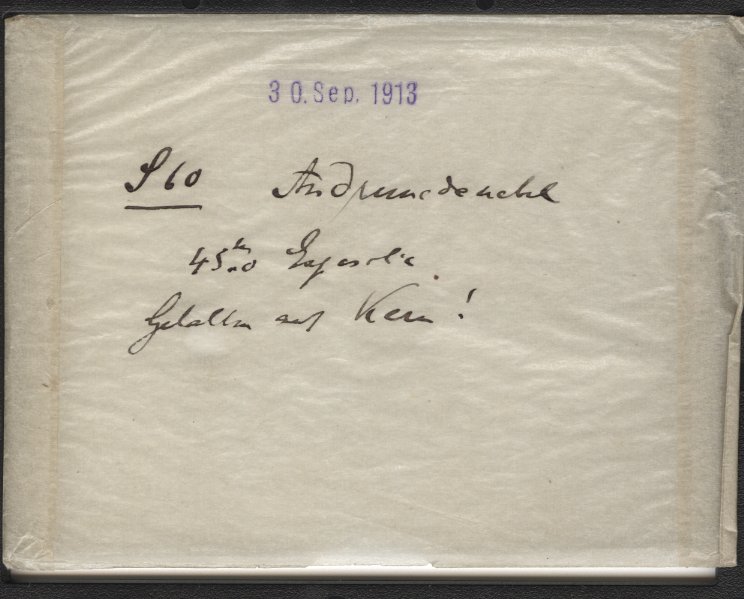 30. Sep. 1913
S 60 Andromedanebel
45 Exposit.
Gehalten auf Kern!